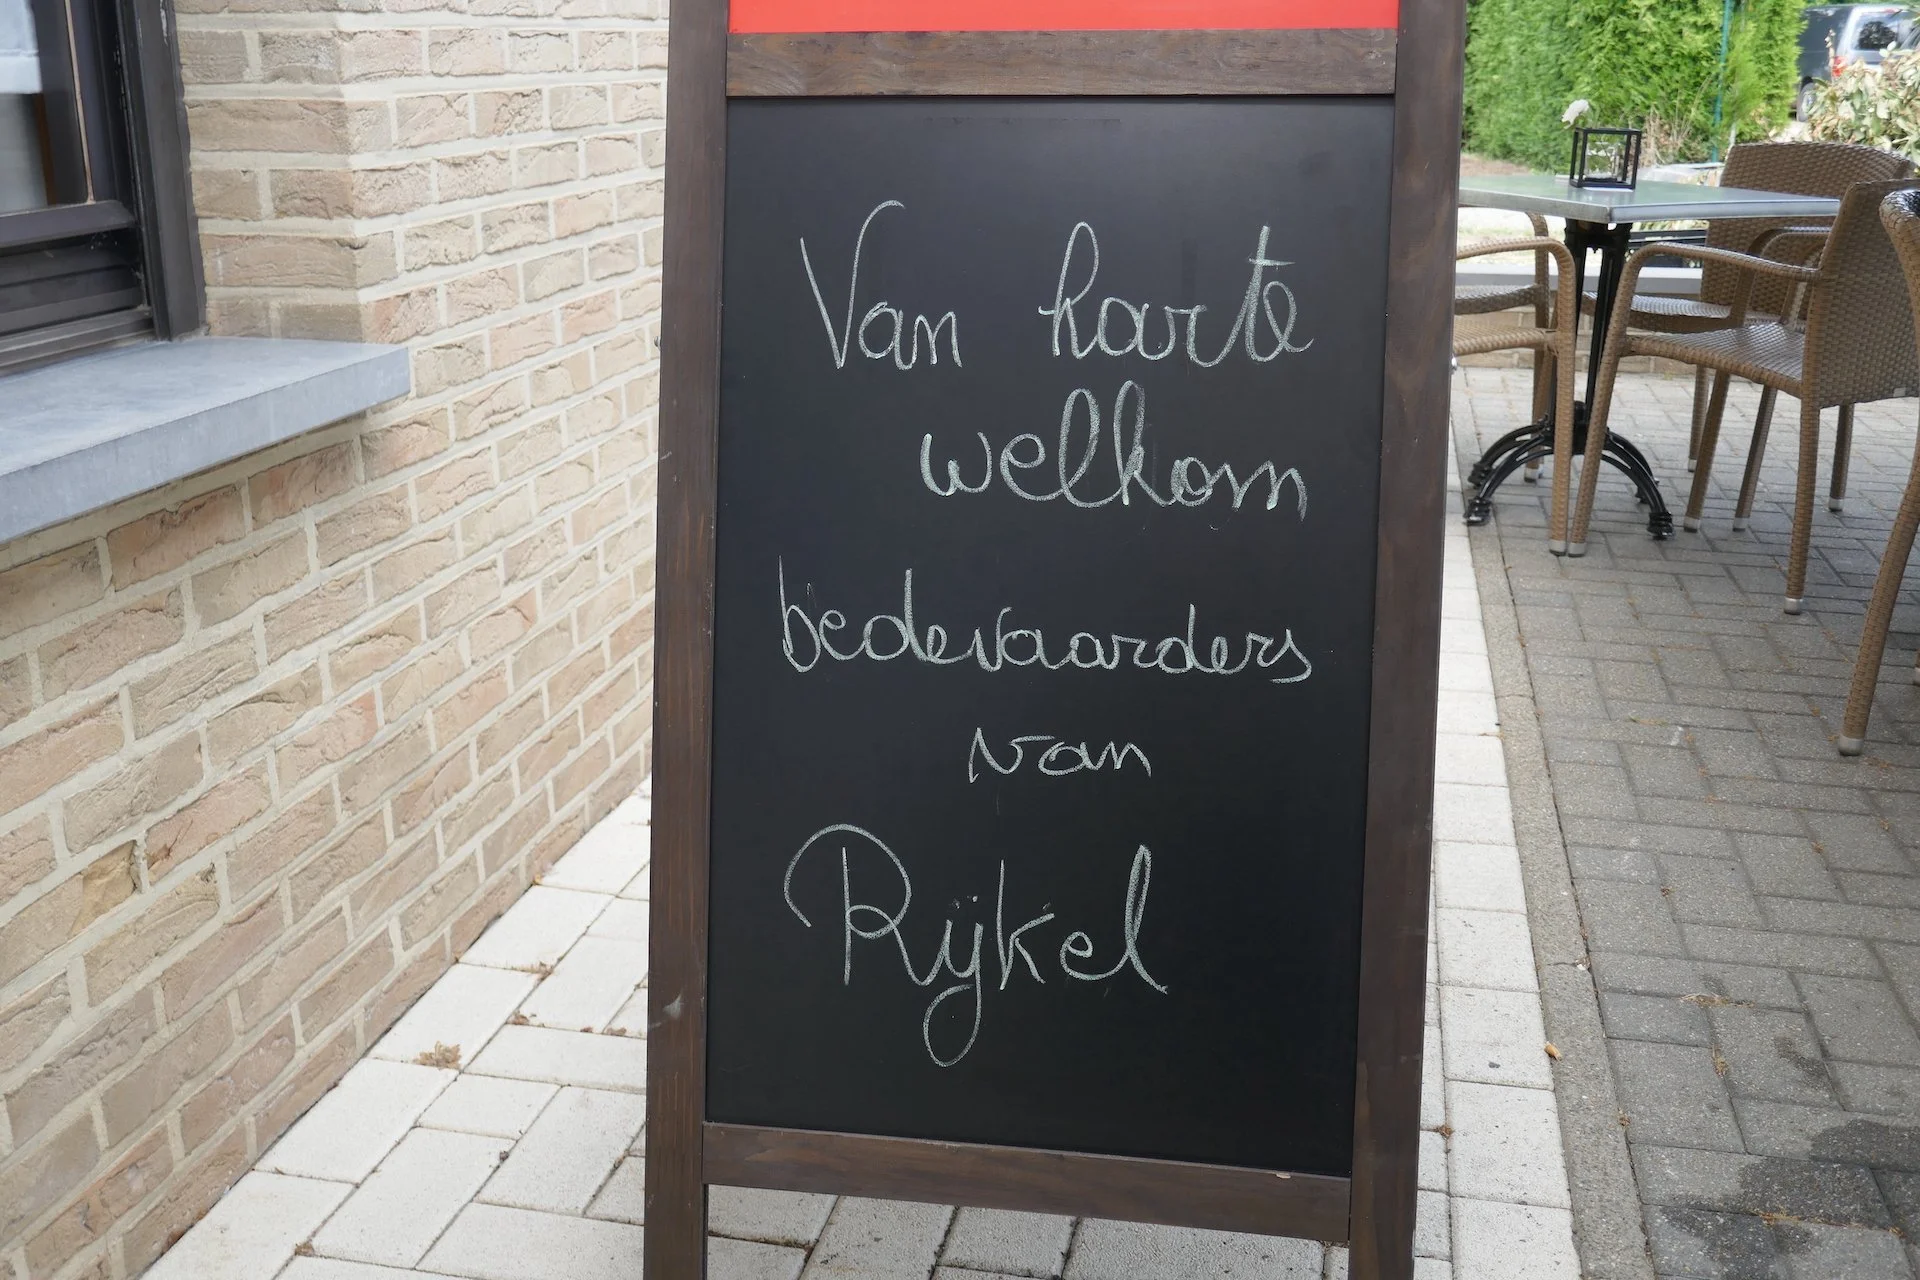 Van harte
welkom
bedevaarders
van
Rijkel